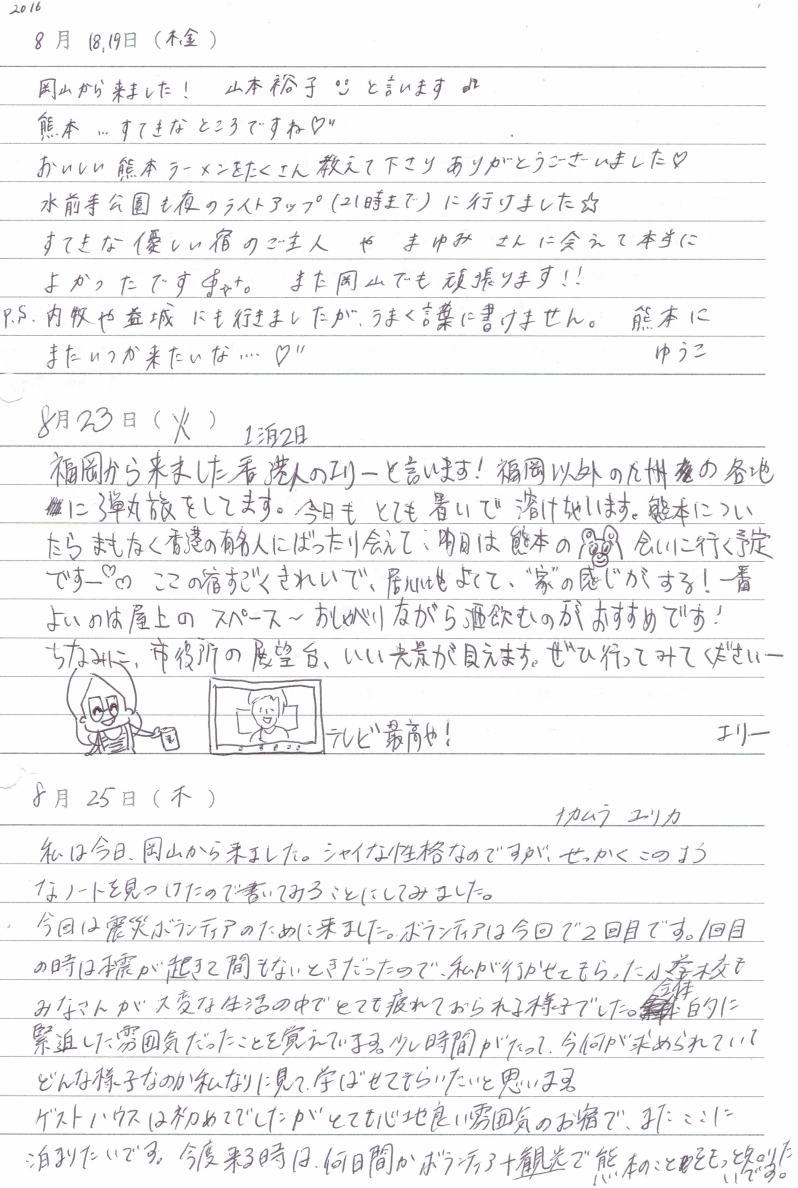 2016
8月 18,19日 (木金)
岡山から来ました! 山本裕子 と言います♫
熊本…すてきなところですね♡"
おいしい熊本ラーメンをたくさん教えて下さり ありがとうございました♡
水前寺公園も夜のライトアップ(21時まで)に行けました☆
すてきな優しい宿のご主人 や まゆみ さんに会えて本当に
よかったです。 また岡山でも頑張ります!!
P.S. 内牧や益城 にも行きましたが、うまく言葉に書けません。 熊本に
またいつか来たいな…. ♡" ゆうこ
8月23日(火) 1泊2日
福岡から来ました香港人のエリーと言います! 福岡以外の九州の各地
に弾丸旅をしてます。今日も とても暑いで 溶けちゃいます。熊本につい
たら まもなく香港の有名人にばったり会えて、明日は熊本の 会いに行く予定
ですー♡♡ ここの宿すごくきれいで、居心地もよくて、"家"の感じがする! 一番
よいのは屋上の スペース〜 おしゃべりながら酒飲むのがおすすめです!
ちなみに、市役所の展望台、いい光景が見えます。ぜひ行ってみてくださいー
テレビ最高や! エリー
8月 25日 (木)
ナカムラ ユリカ
私は今日、岡山から来ました。シャイな性格なのですが、せっかくこのよう
なノートを見つけたので書いてみることにしてみました。
今回は震災ボランティアのために来ました。ボランティアは今回で2回目です。1回目
の時は震が起きて間もないときだったので、私が行かせてもらった小学校も
みなさんが大変な生活の中でとても疲れておられる様子でした。全体的に
緊迫した雰囲気だったことを覚えています。少し時間がたって、今何が求められていて
どんな様子なのか私なりに見て、学ばせてもらいたいと思います。
ゲストハウスは初めてでしたがとても心地良い雰囲気のお宿で、またここに
泊まりたいです。今度来る時は、何日間かボランティア+観光で熊本のことをもっと知りた
いです。